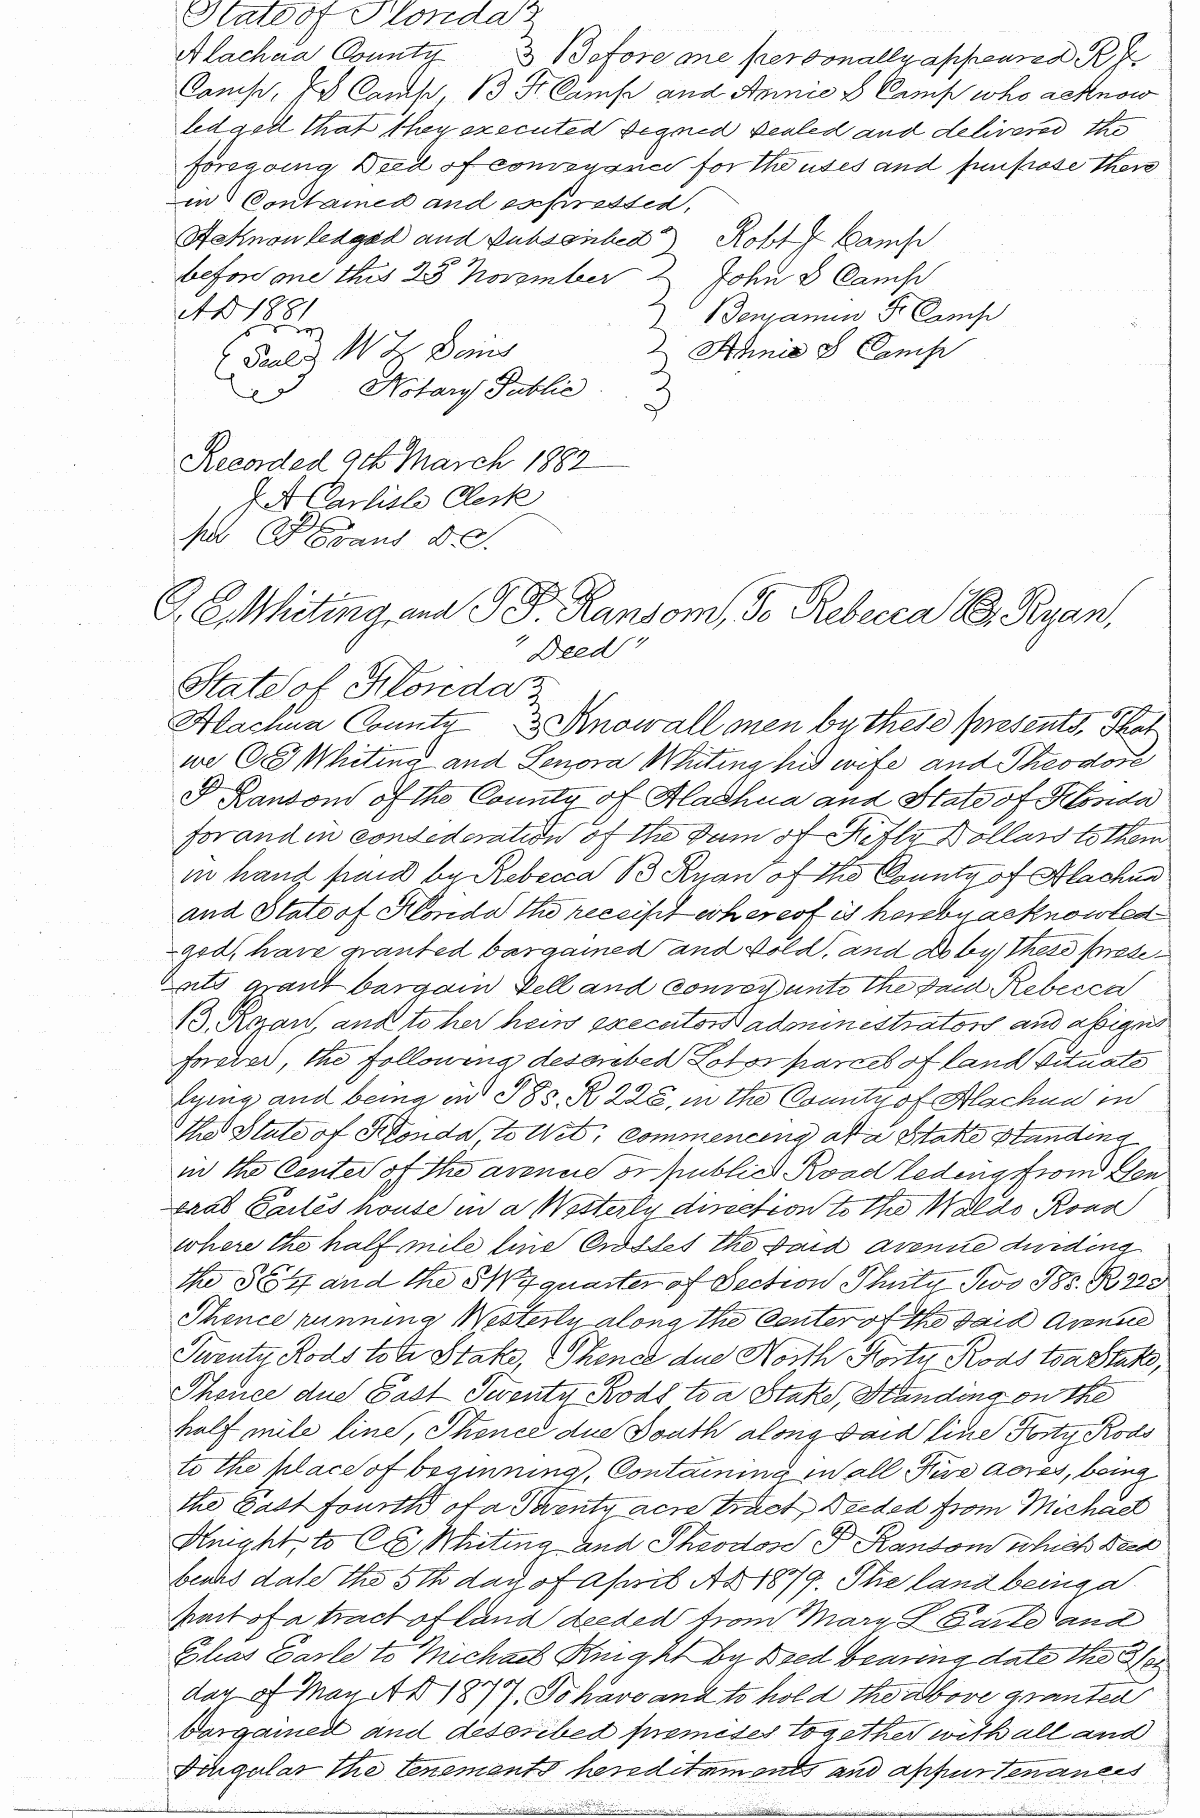 State of Florida
Alachua County Before me personally appeared R J.
Camp, J S Camp, B F Camp and Annie S Camp who acknow
ledged that they executed signed sealed and delivered the
foregoing Deed of conveyance for the uses and purpose there
in Contained and expressed.
Acknowledged and subscribed Robt J Camp
before me this 25 November John S Camp
AD 1881 Benjamin F Camp
Seal W Z Sims Annie S Camp
Notary Public
Recorded 9th March 1882
J A Carlisle Clerk
per C P Evans D.C.
C. E. Whiting and T. P. Ransom, To Rebecca B. Ryan,
"Deed"
State of Florida
Alachua County Know all men by these presents, That
we C E Whiting and Lenora Whiting his wife and Theodore
P Ransom of the County of Alachua and State of Florida
for and in consideration of the sum of Fifty Dollars to them
in hand paid by Rebecca B Ryan of the County of Alachua
and State of Florida the receipt whereof is hereby acknowled-
-ged, have granted bargained and sold, and do by these prese-
-nts grant bargain sell and convey unto the said Rebecca
B. Ryan, and to her heirs executors administrators and assigns
forever, the following described Lot or parcel of land situate
lying and being in T8s. R22E, in the County of Alachua in
the State of Florida, to Wit; commencing at a Stake standing
in the Center of the avenue or public Road leding from Gen
eral Earle's house in a Westerly direction to the Waldo Road
where the half mile line Crosses the said avenue dividing
the SE4 and the SW4 quarter of Section Thirty Two T8s. R22E
Thence running Westerly along the Center of the said avenue
Twenty Rods to a Stake, Thence due North Forty Rods to a Stake,
Thence due East Twenty Rods to a Stake, Standing on the
half mile line, Thence due South along said line Forty Rods
to the place of beginning, Containing in all Five acres, being
the East fourth of a Twenty acre tract, Deeded from Michael
Knight, to C E Whiting and Theodore P Ransom which Deed
bears date the 5th day of April AD 1879. The land being a
part of a tract of land deeded from Mary L Earle and
Elias Earle to Michael Knight by Deed bearing date the 31st
day of May AD 1877. To have and to hold the above granted
bargained and described premises together with all and
singular the tenements hereditaments and appurtenances